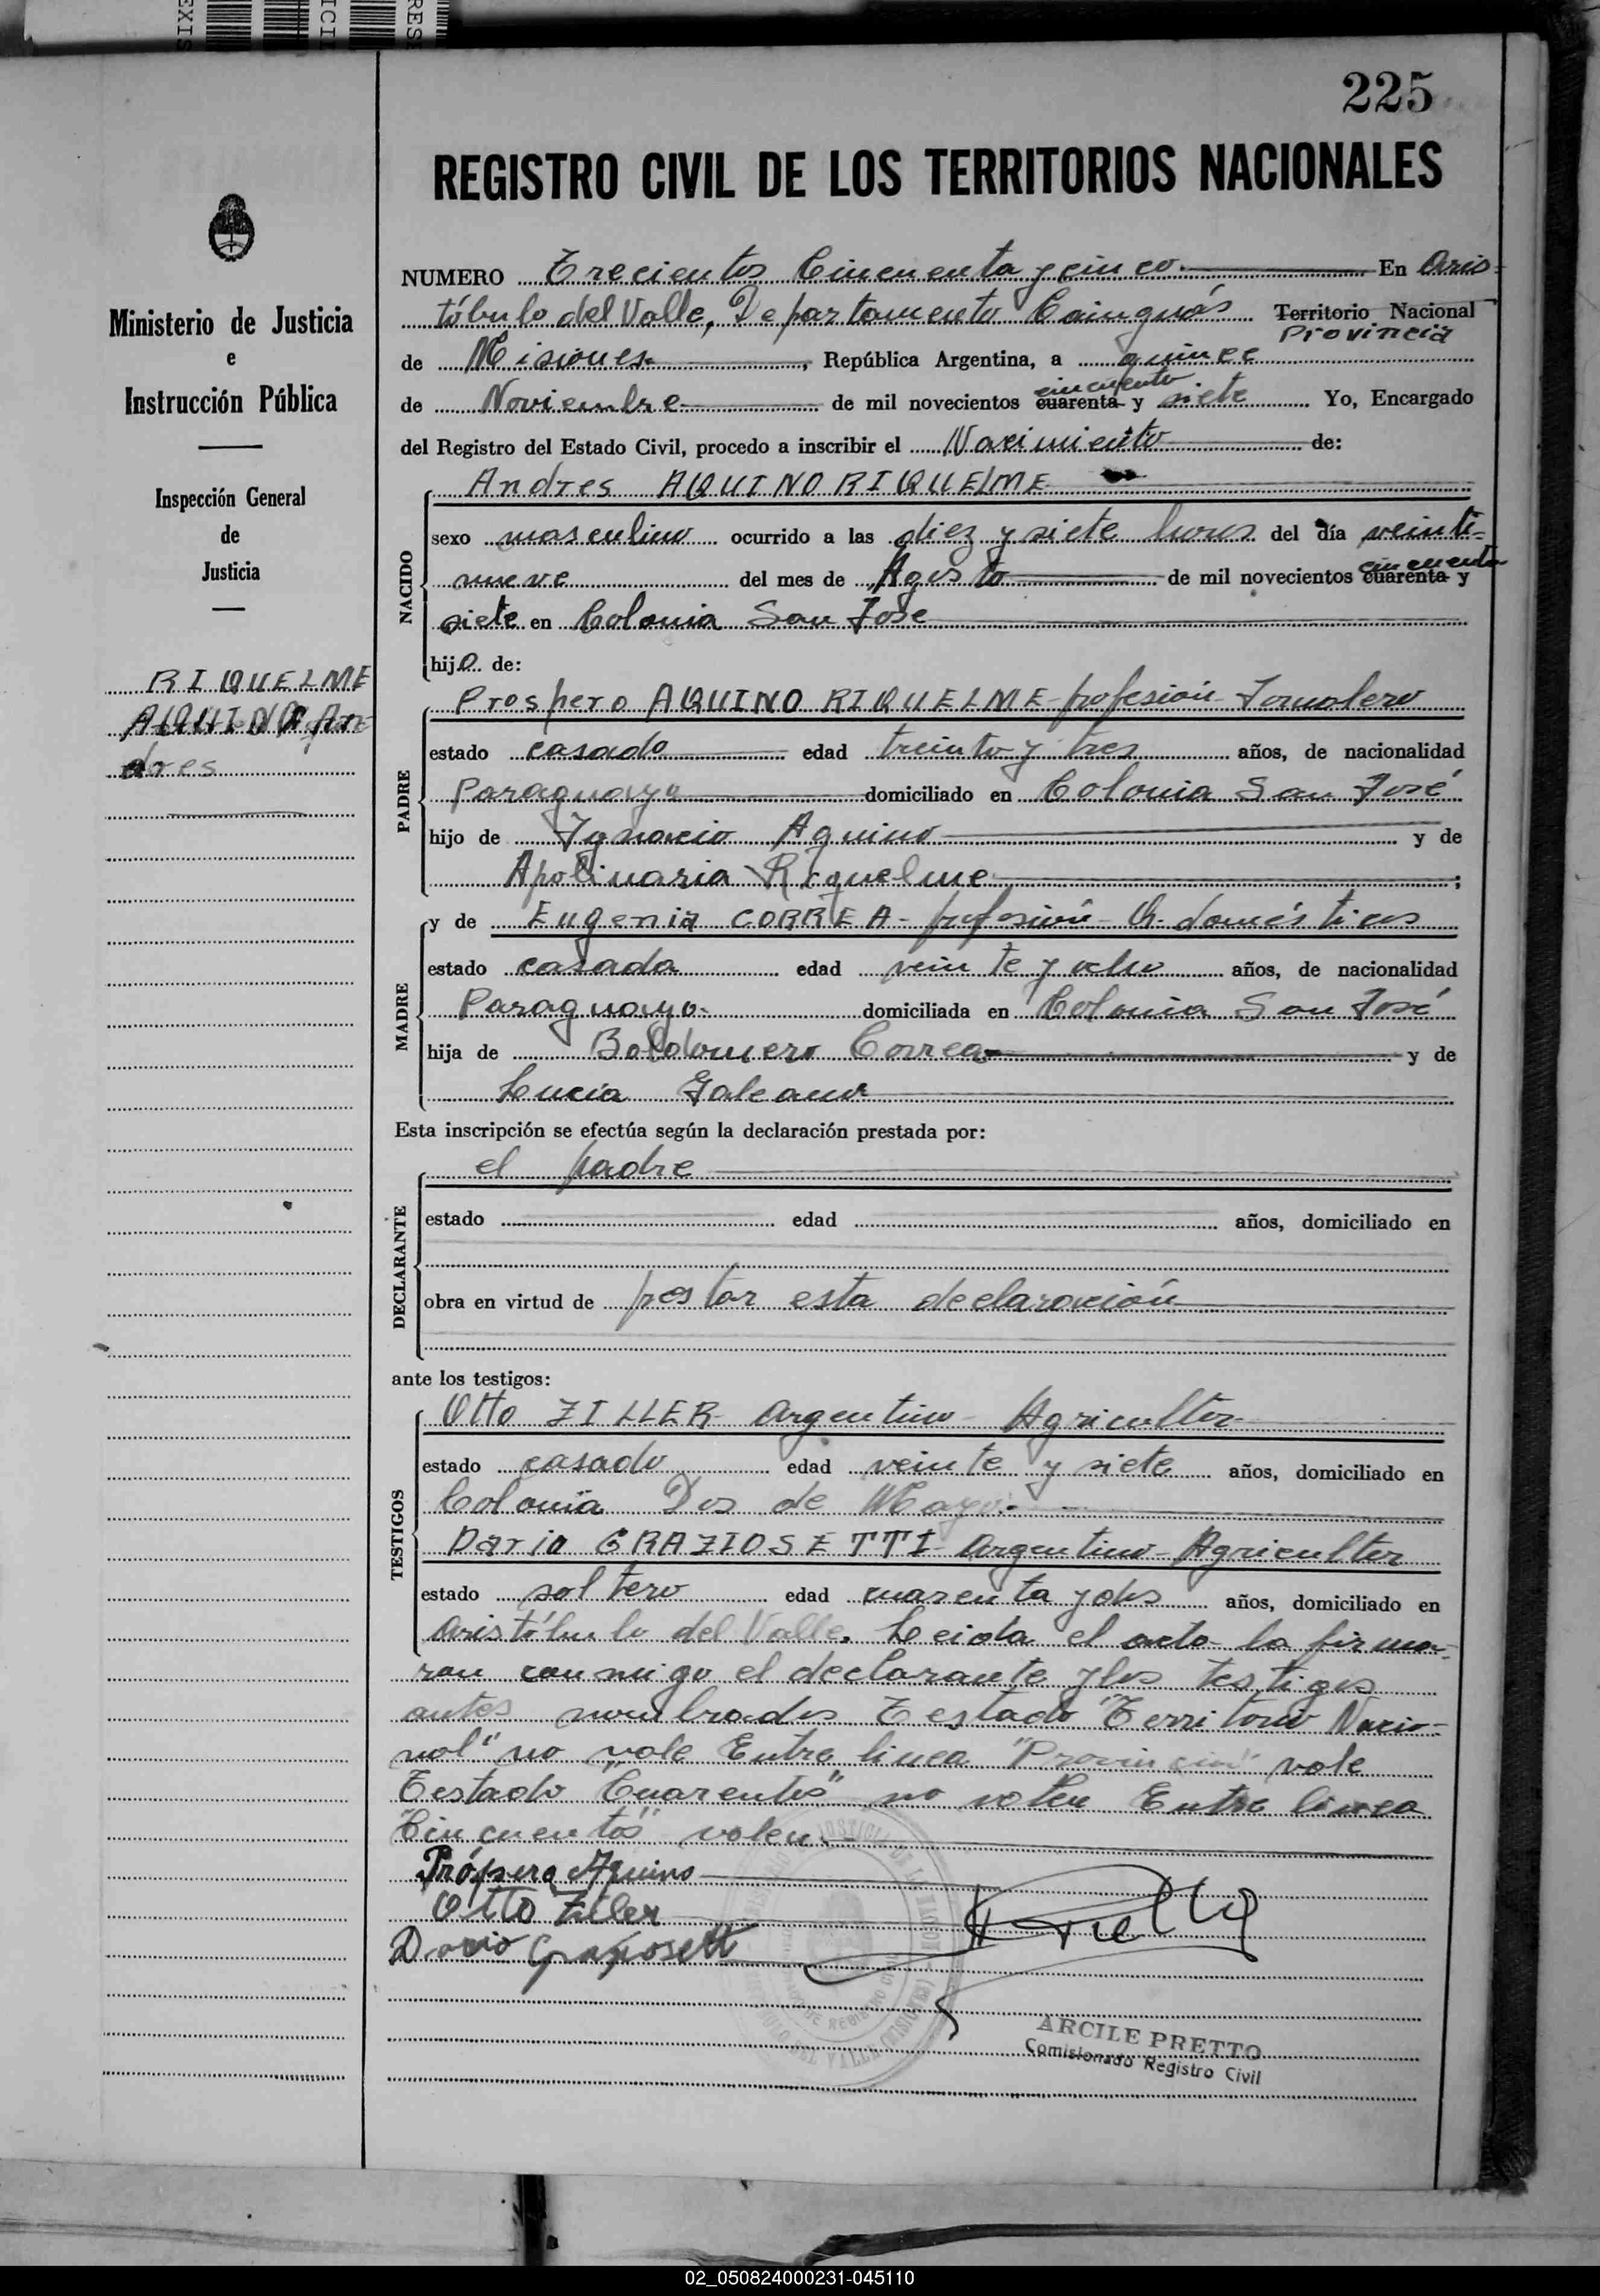 225
REGISTRO CIVIL DE LOS TERRITORIOS NACIONALES
Ministerio de Justicia
e
Instrucción Pública
Inspección General
de
Justicia
RIQUELME
AQUINO An
dres
NUMERO Trecientos Cincuenta y cinco En Aris-
tóbulo del Valle, Departamento Cainguás Territorio Nacional
Provincia
de Misiones, República Argentina, a quince
cincuenta
de Noviembre de mil novecientos cuarenta y siete Yo, Encargado
del Registro del Estado Civil, procedo a inscribir el Nacimiento de:
Andres AQUINO RIQUELME
NACIDO
sexo masculino ocurrido a las diez y siete horas del día veinti-
cincuenta
nueve del mes de Agosto de mil novecientos cuarenta y
siete en Colonia San Jose
hijo de:
PADRE
Prospero AQUINO RIQUELME profesión Jornalero
estado casado edad treinta y tres años, de nacionalidad
Paraguaya domiciliado en Colonia San José
hijo de Ignacio Aquino y de
Apolinaria Riquelme;
MADRE
y de Eugenia CORREA - profesión - Q. domésticos
estado casada edad veinte y ocho años, de nacionalidad
Paraguaya. domiciliada en Colonia San José
hija de Baldomero Correa y de
Lucia Galeano
Esta inscripción se efectúa según la declaración prestada por:
DECLARANTE
el padre
estado edad años, domiciliado en
obra en virtud de prestar esta declaración
ante los testigos:
TESTIGOS
Otto ZILLER - Argentino - Agricultor
estado casado edad veinte y siete años, domiciliado en
Colonia Dos de Mayo.-
Dario GRAZIOSETTI - Argentino - Agricultor
estado soltero edad cuarenta y dos años, domiciliado en
Aristóbulo del Valle. Leida el acta la firma-
ron conmigo el declarante y los testigos
antes nombrados Testado "Territorio Nacio-
nal" no vale Entre linea "Provincia" vale
Testado "Cuarenta" no valen Entre linea
"Cincuenta" valen.-
Próspero Aquino
Otto Ziller
Dario Graziosetti
ARCILE PRETTO
Comisionado Registro Civil
02_050824000231-045110